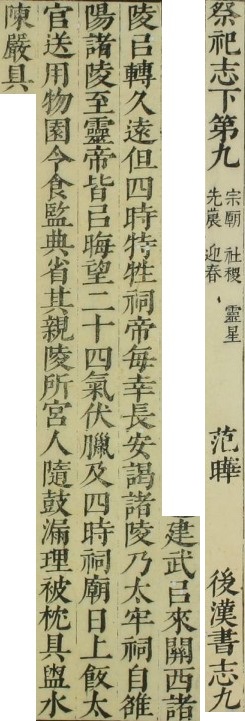 祭祀志下第九
宗朝 社稷 靈星
先農 迎春
范曄 後漢書志九
建武㠯來關西諸
陵㠯轉久遠但四時特牲祠帝每幸長安謁諸陵乃太牢祠自雒
陽諸陵至靈帝皆㠯晦望二十四氣伏臘及四時祠廟日上飯太
官送用物園令食監典省其親陵所宮人隨鼓漏理被枕具盥水
陳嚴具